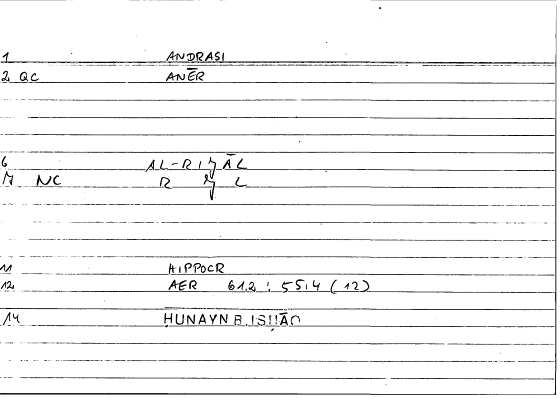 1 ANDRASI
2 QC ANĒR
6 AL-RIǦĀL
7 NC R Ǧ L
11 HIPPOCR
12 AER 61.2 : 55.4 (12)
14 ḤUNAYN B. ISḤĀQ